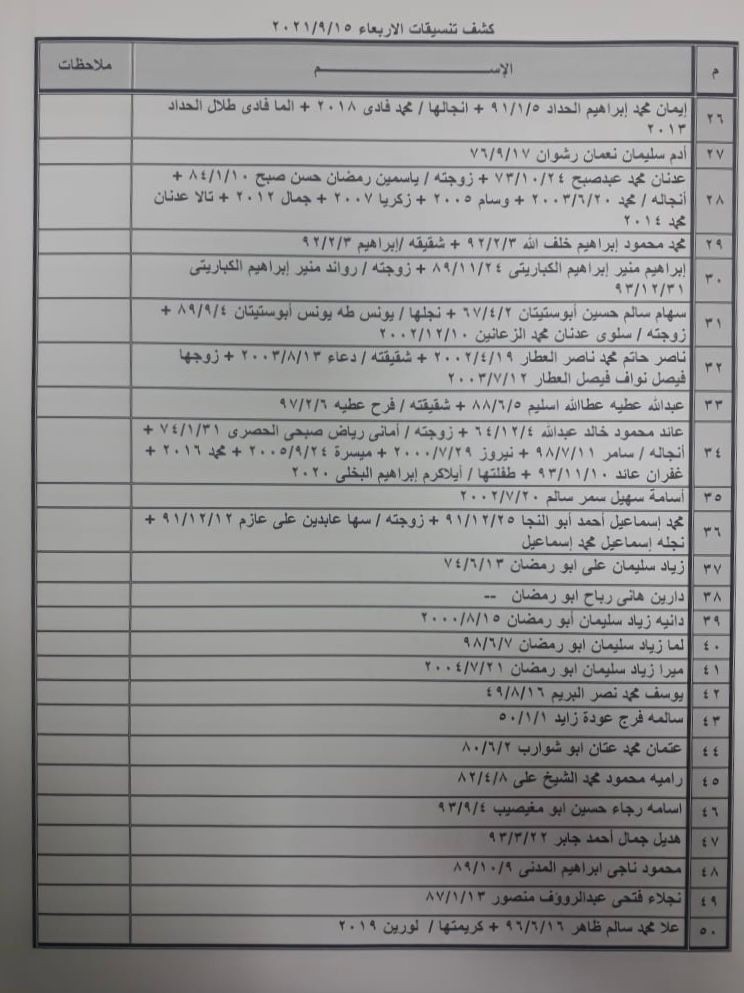 كشف تنسيقات الاربعاء ٢٠٢١/٩/١٥
م الإســـــــم ملاحظات
٢٦ إيمان محمد إبراهيم الحداد ٩١/١/٥ + انجالها / محمد فادى ٢٠١٨ + الما فادى طلال الحداد
٢٠١٣
٢٧ أدم سليمان نعمان رشوان ٧٦/٩/١٧
عدنان محمد عبدصبح ٧٣/١٠/٢٤ + زوجته / ياسمين رمضان حسن صبح ٨٤/١/١٠ +
٢٨ أنجاله / محمد ٢٠٠٣/٦/٢٠ + وسام ٢٠٠٥ + زكريا ٢٠٠٧ + جمال ٢٠١٢ + تالا عدنان
محمد ٢٠١٤
٢٩ محمد محمود إبراهيم خلف الله ٩٢/٢/٣ + شقيقه /إبراهيم ٩٢/٢/٣
٣٠ إبراهيم منير إبراهيم الكباريتى ٨٩/١١/٢٤ + زوجته / رواند منير إبراهيم الكباريتى
٩٣/١٢/٣١
٣١ سهام سالم حسين أبوستيتان ٦٧/٤/٢ + نجلها / يونس طه يونس أبوستيتان ٨٩/٩/٤ +
زوجته / سلوى عدنان محمد الزعانين ٢٠٠٢/١٢/١٠
٣٢ ناصر حاتم محمد ناصر العطار ٢٠٠٢/٤/١٩ + شقيقته / دعاء ٢٠٠٣/٨/١٣ + زوجها
فيصل نواف فيصل العطار ٢٠٠٣/٧/١٢
٣٣ عبدالله عطيه عطاالله اسليم ٨٨/٦/٥ + شقيقته / فرح عطيه ٩٧/٢/٦
عائد محمود خالد عبدالله ٦٤/١٢/٤ + زوجته / أمانى رياض صبحى الحصرى ٧٤/١/٣١ +
٣٤ أنجاله / سامر ٩٨/٧/١١ + نيروز ٢٠٠٠/٧/٢٩ + ميسرة ٢٠٠٥/٩/٢٤ + محمد ٢٠١٦ +
غفران عائد ٩٣/١١/١٠ + طفلتها / أيلاكرم إبراهيم البخلى ٢٠٢٠
٣٥ أسامة سهيل سمر سالم ٢٠٠٢/٧/٢٠
٣٦ محمد إسماعيل أحمد أبو النجا ٩١/١٢/٢٥ + زوجته / سها عابدين على عازم ٩١/١٢/١٢ +
نجله إسماعيل محمد إسماعيل
٣٧ زياد سليمان على ابو رمضان ٧٤/٦/١٣
٣٨ دارين هانى رباح ابو رمضان --
٣٩ دانيه زياد سليمان أبو رمضان ٢٠٠٠/٨/١٥
٤٠ لما زياد سليمان ابو رمضان ٩٨/٦/٧
٤١ ميرا زياد سليمان ابو رمضان ٢٠٠٤/٧/٢١
٤٢ يوسف محمد نصر البريم ٤٩/٨/١٦
٤٣ سالمه فرج عودة زايد ٥٠/١/١
٤٤ عتمان محمد عتان ابو شوارب ٨٠/٦/٢
٤٥ راميه محمود محمد الشيخ على ٨٢/٤/٨
٤٦ اسامه رجاء حسين ابو مغيصيب ٩٣/٩/٤
٤٧ هديل جمال أحمد جابر ٩٣/٣/٢٢
٤٨ محمود ناجى ابراهيم المدنى ٨٩/١٠/٩
٤٩ نجلاء فتحى عبدالرووف منصور ٨٧/١/١٣
٥٠ علا محمد سالم ظاهر ٩٦/٦/١٦ + كريمتها / لورين ٢٠١٩